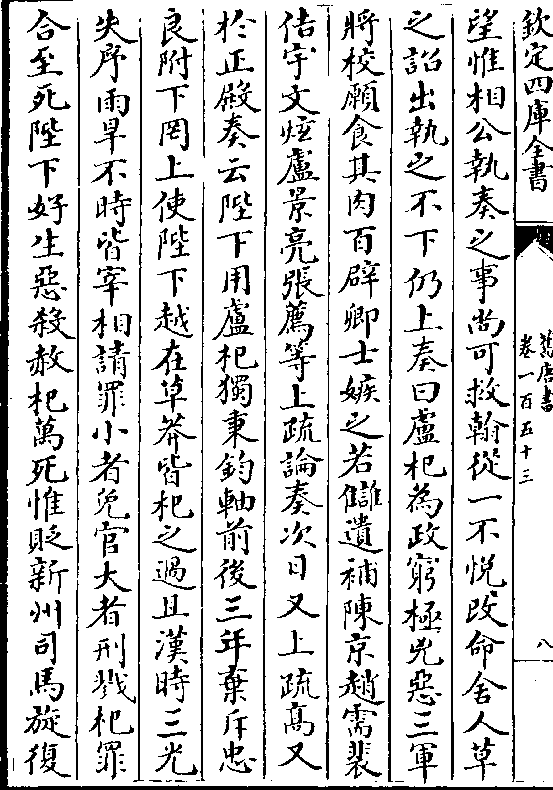 欽定四庫全書
舊唐書
卷一百五十三
八
望惟相公執奏之事尚可救翰從一不悅改命舍人草
之詔出執之不下仍上奏曰盧杞為政窮極兇惡三軍
將校願食其肉百辟卿士嫉之若讎遺補陳京趙需裴
佶宇文炫盧景亮張薦等上疏論奏次日又上疏高又
於正殿奏云陛下用盧杞獨秉鈞軸前後三年棄斥忠
良附下罔上使陛下越在草莽皆杞之過且漢時三光
失序雨旱不時皆宰相請罪小者免官大者刑戮杞罪
合至死陛下好生惡殺赦杞萬死惟貶新州司馬旋復